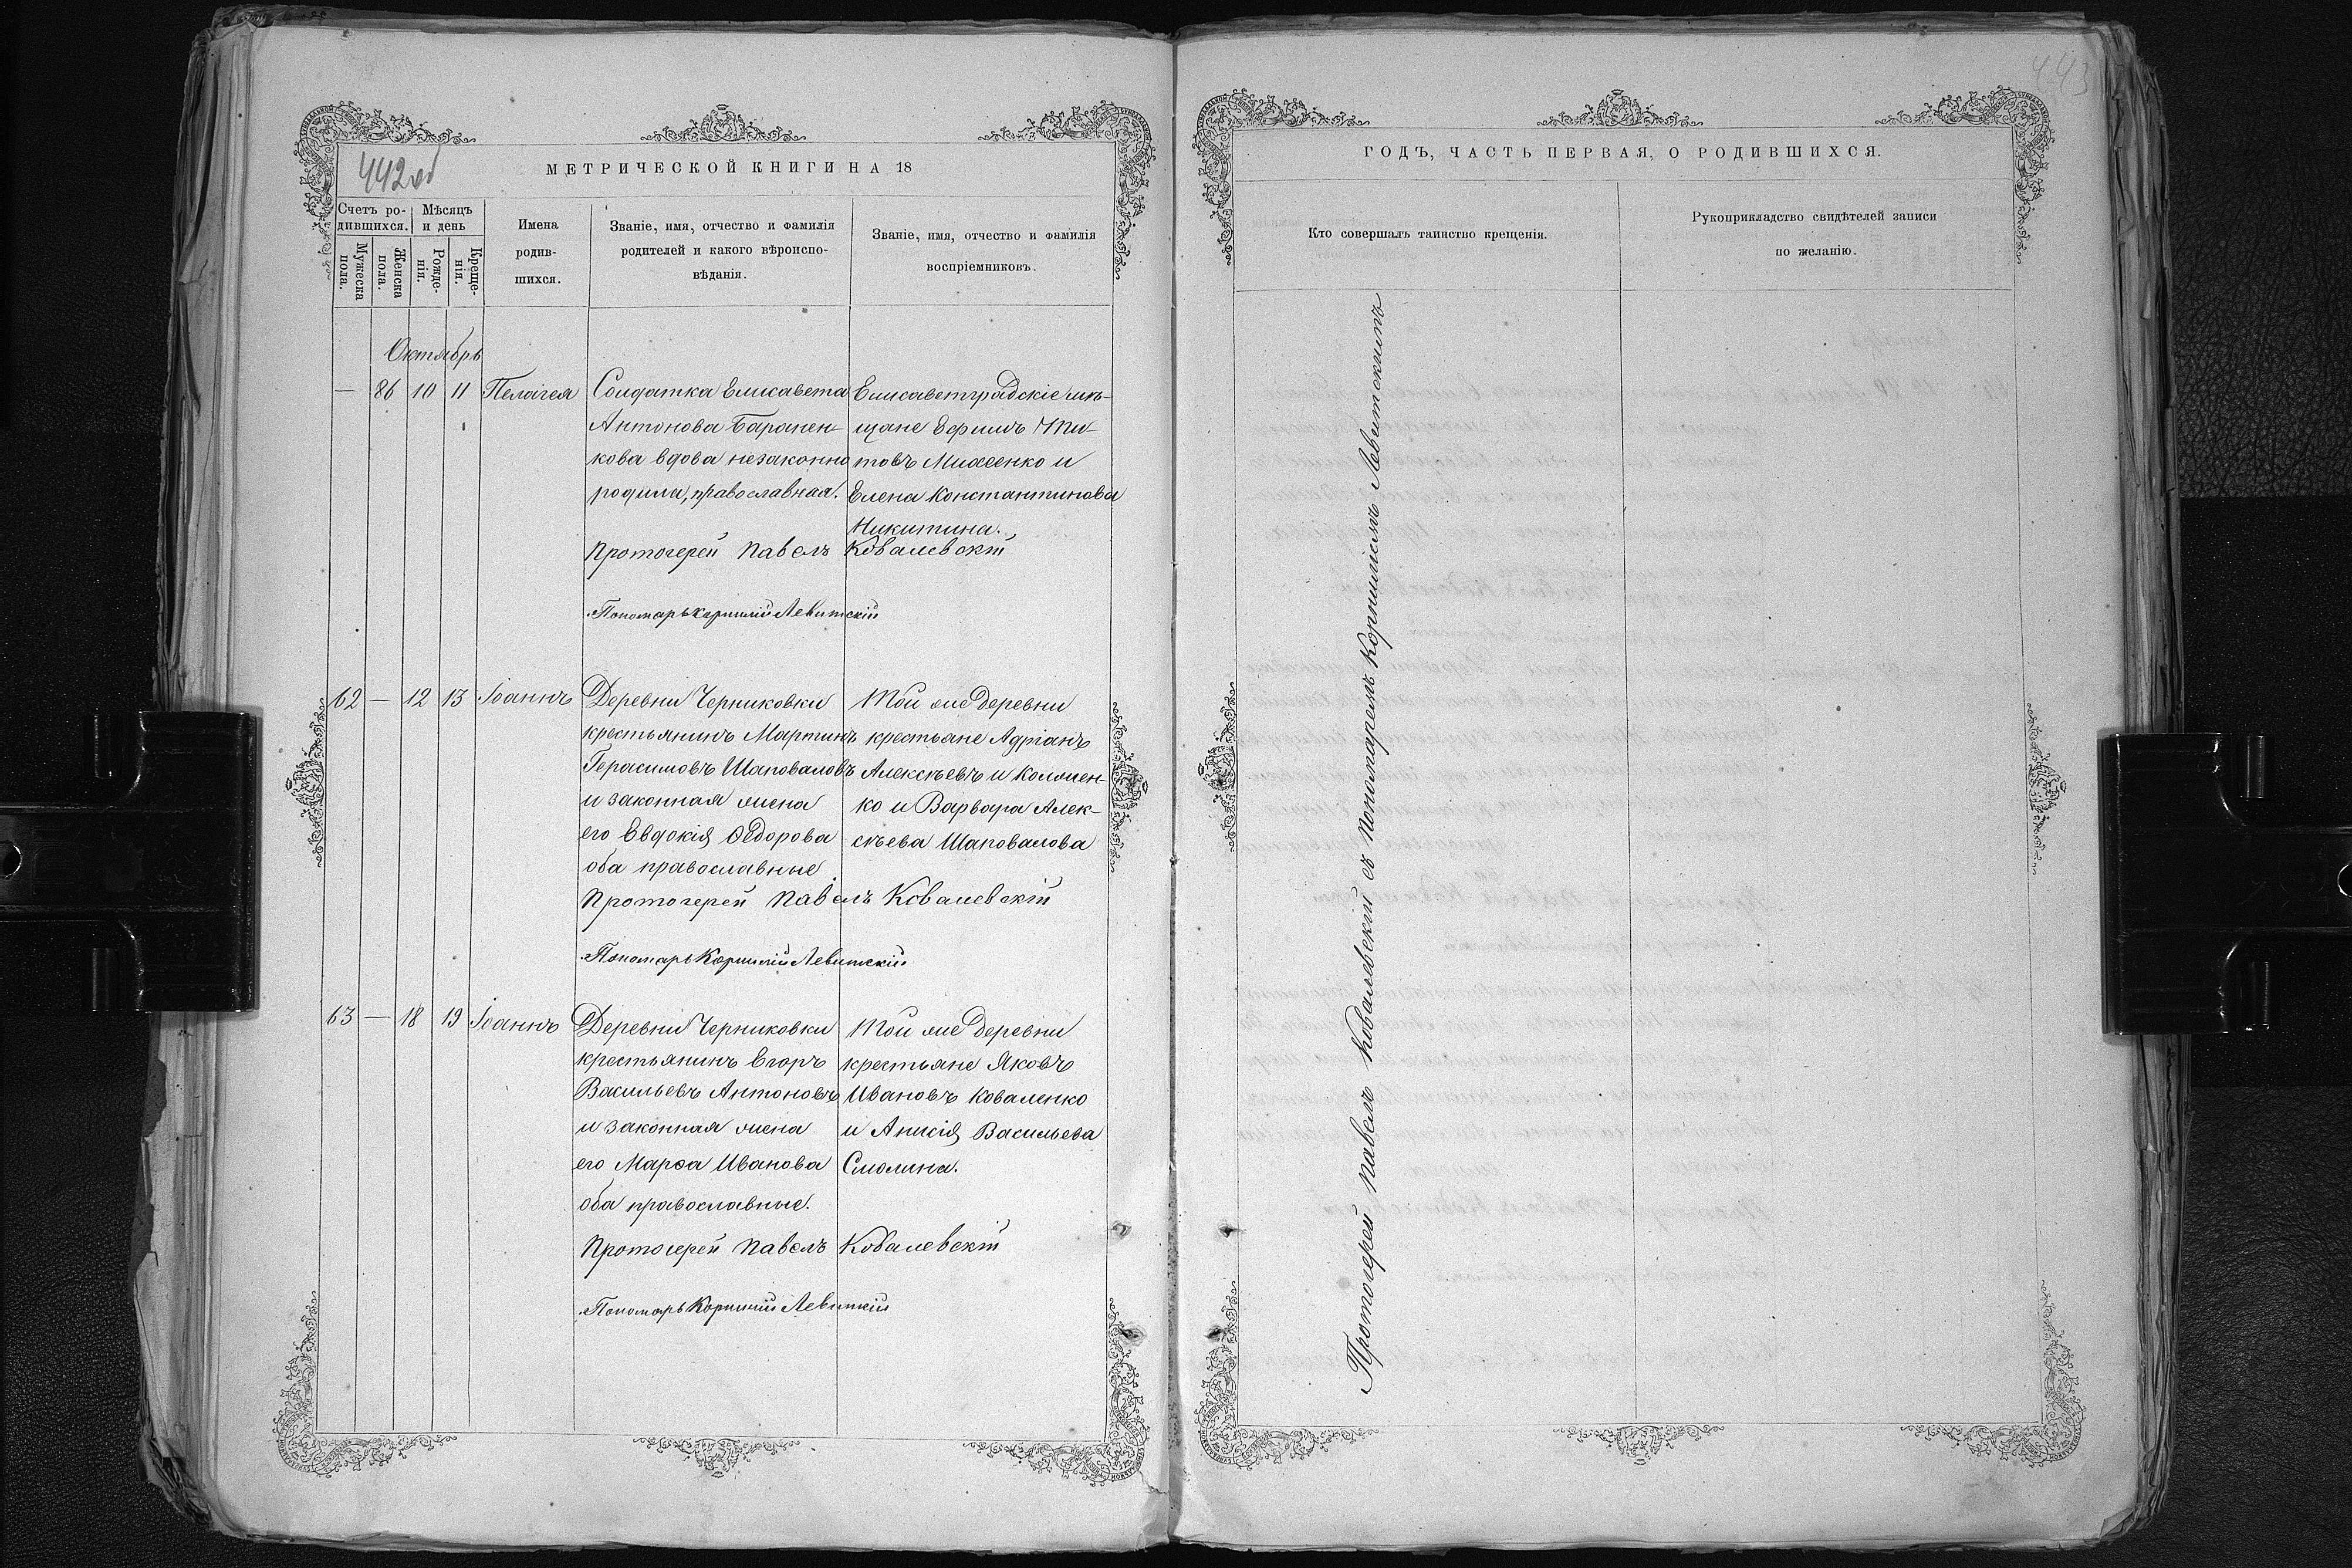 442об
МЕТРИЧЕСКОЙ КНИГИ НА 18
Счетъ ро-
дившихся.
Мѣсяцъ
и день
Мужеска
пола.
Женска
пола.
Рожде-
нія.
Креще-
нія.
Имена
родив-
шихся.
Званіе, имя, отчество и фамилія
родителей и какого вѣроиспо-
вѣданія.
Званіе, имя, отчество и фамилія
воспріемниковъ.
Октябрь
— 86 10 11 Пелагея
Солдатка Елисавета
Антонова Баранен-
кова вдова незаконно
родила, православная.
Елисаветградскіе мѣ-
щане Ефимъ Ти-
товъ Михеенко и
Елена Константинова
Никитина.
Протоіерей Павелъ Ковалевскій
Пономарь Корнилій Левитскій
62 — 12 13 Іоаннъ
Деревни Черниковки
крестьянинъ Мартинъ
Герасимовъ Шаповаловъ
и законная жена
его Евдокія Ѳедорова
оба православные
Той же деревни
крестьане Адріанъ
Алексѣевъ и Коломен-
ко и Варвара Алек-
сѣева Шаповалова
Протоіерей Павелъ Ковалевскій
Пономарь Корнилій Левитскій
63 — 18 19 Іоаннъ
Деревни Черниковки
крестьянинъ Егоръ
Васильевъ Антоновъ
и законная жена
его Марѳа Иванова
оба православные.
Той же деревни
крестьяне Яковъ
Ивановъ Коваленко
и Анисія Васильева
Смолина.
Протоіерей Павелъ Ковалевскій
Пономарь Корнилій Левитскій
443
ГОДЪ, ЧАСТЬ ПЕРВАЯ, О РОДИВШИХСЯ.
Кто совершалъ таинство крещенія.
Рукоприкладство свидѣтелей записи
по желанію.
Протоіерей Павелъ Ковалевскій съ Пономаремъ Корниліемъ Левитскимъ